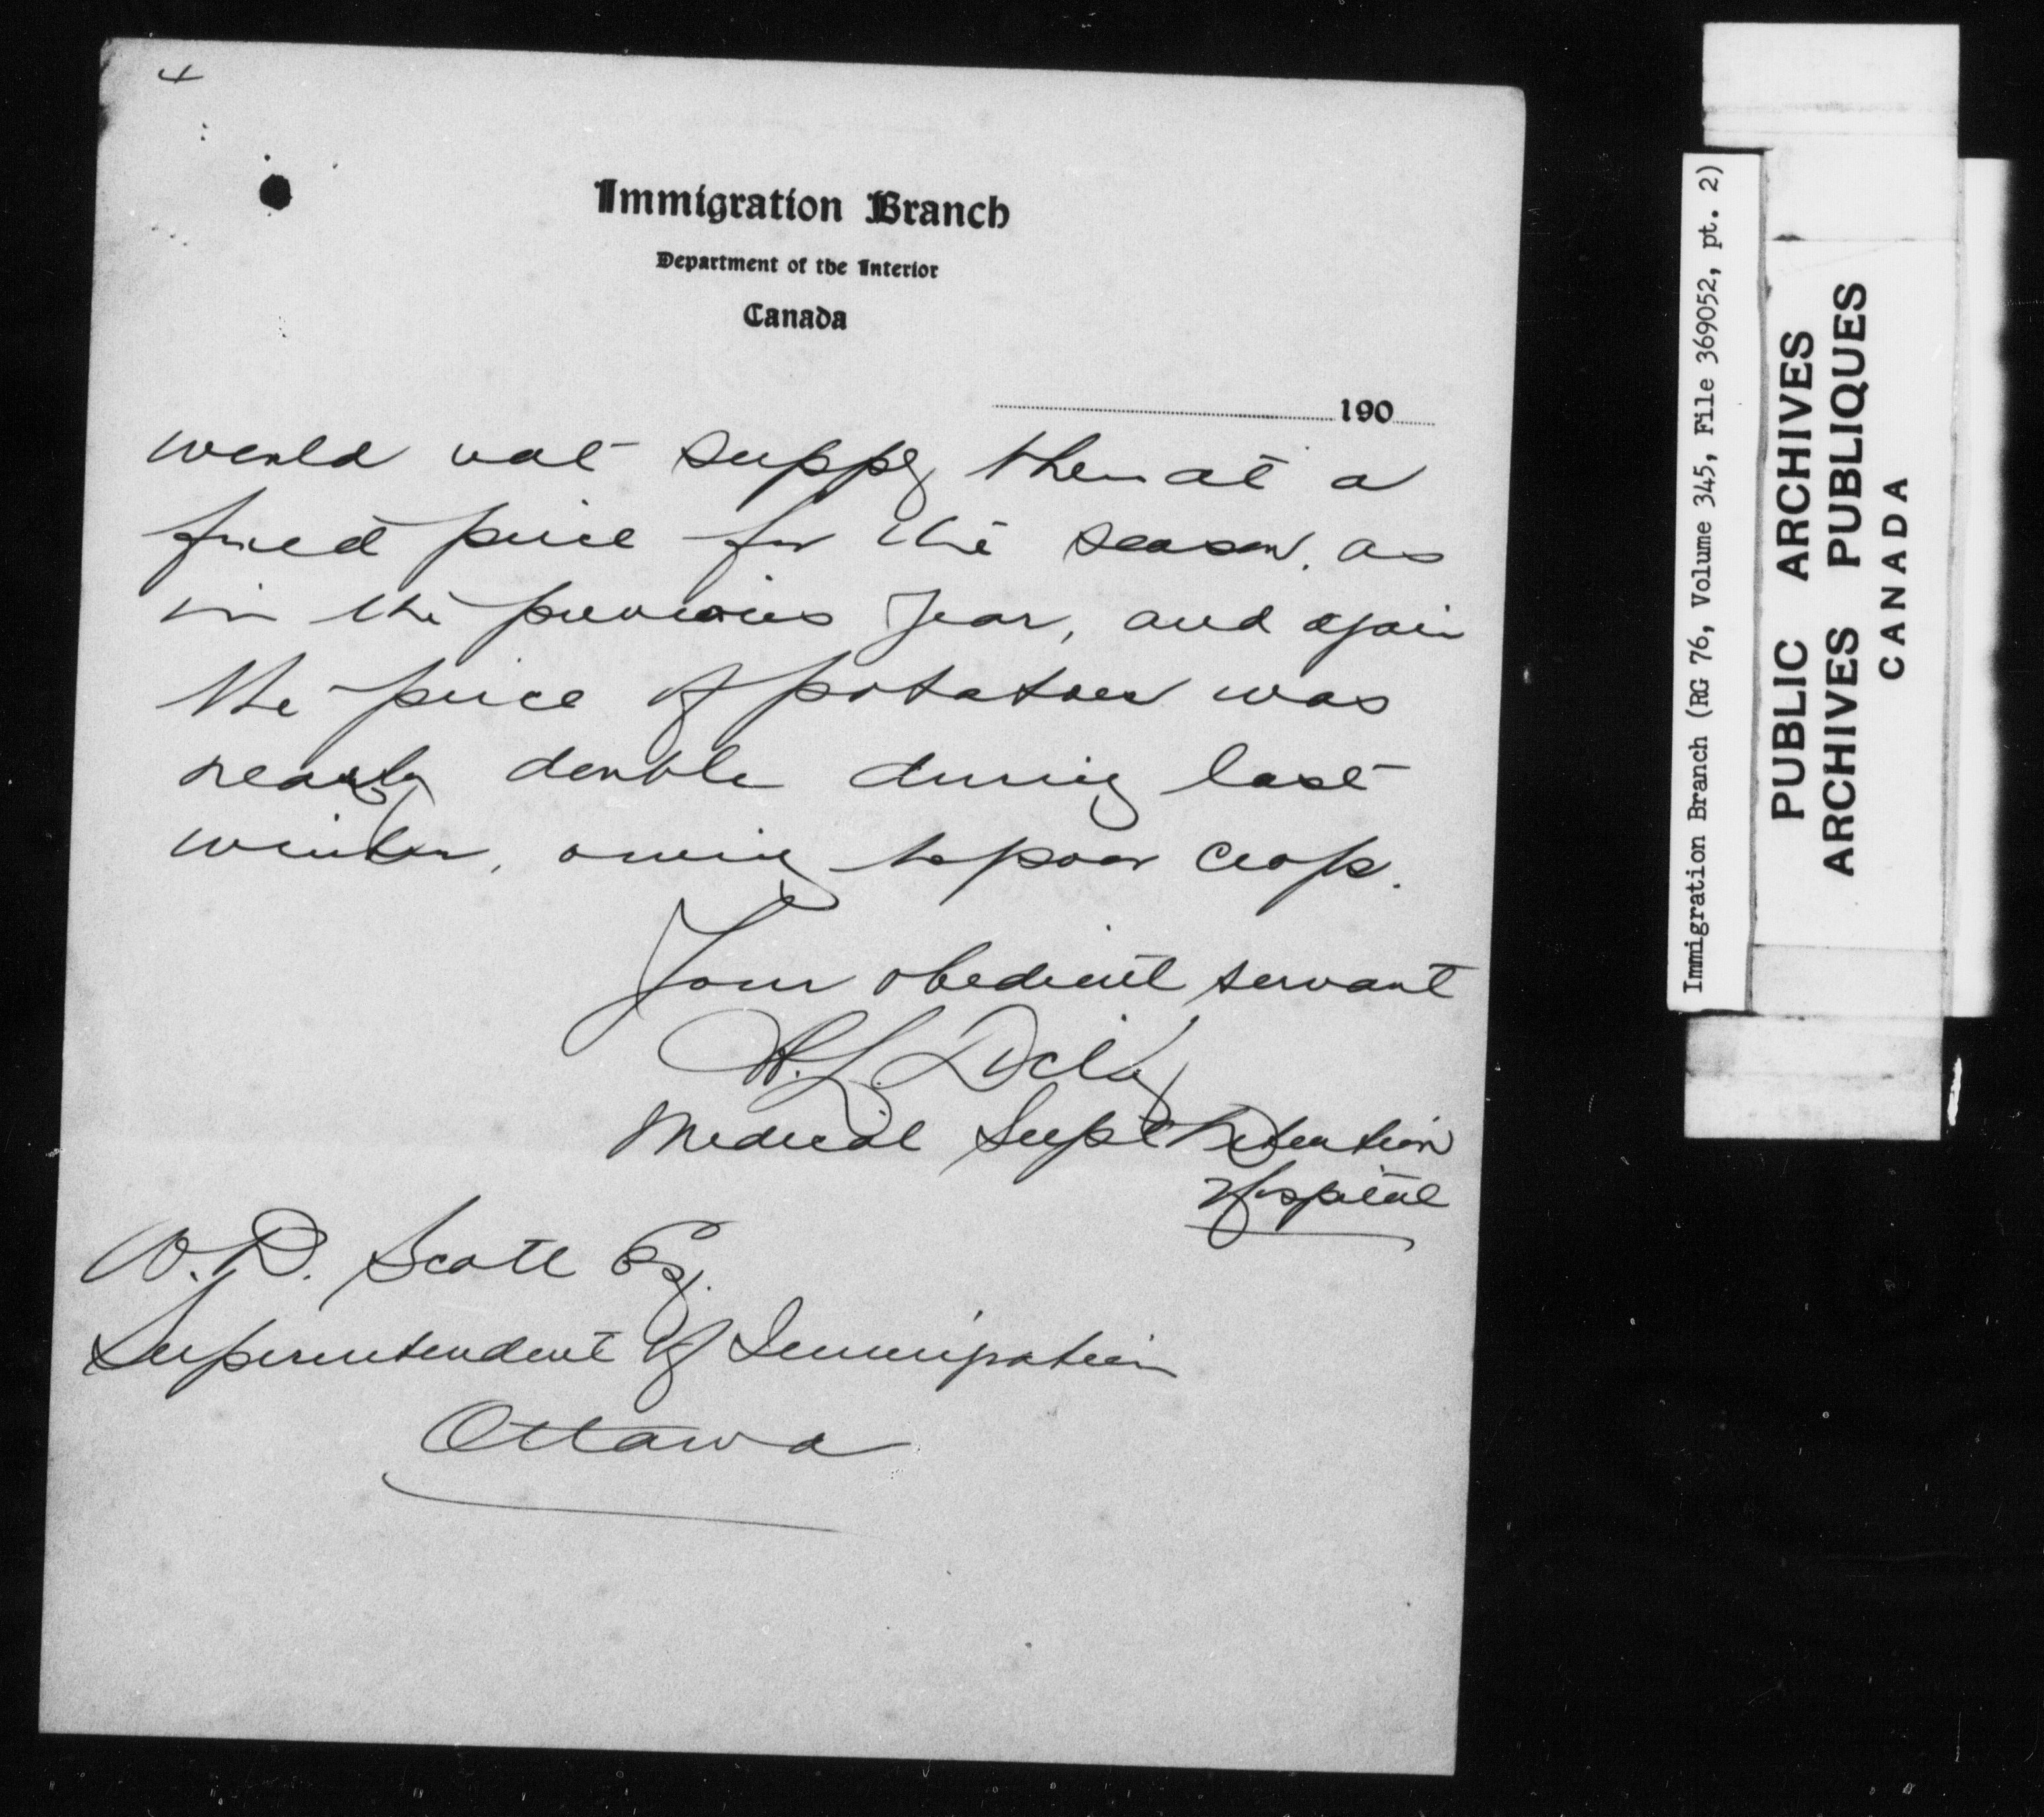 4
Immigration Branch
Department of the Interior
Canada
190
would not supply them at a
fixed price for the season, as
in the previous year, and again
the price of potatoes was
nearly double during last
winter, owing to poor crop.
Your obedient servant
Medical Supt Detention
Hospital
W.D. Scott Esq.
Superintendent of Immigration
Ottawa
Immigration Branch (RG 76, Volume 345, File 369052, pt. 2)
PUBLIC ARCHIVES
ARCHIVES PUBLIQUES
CANADA